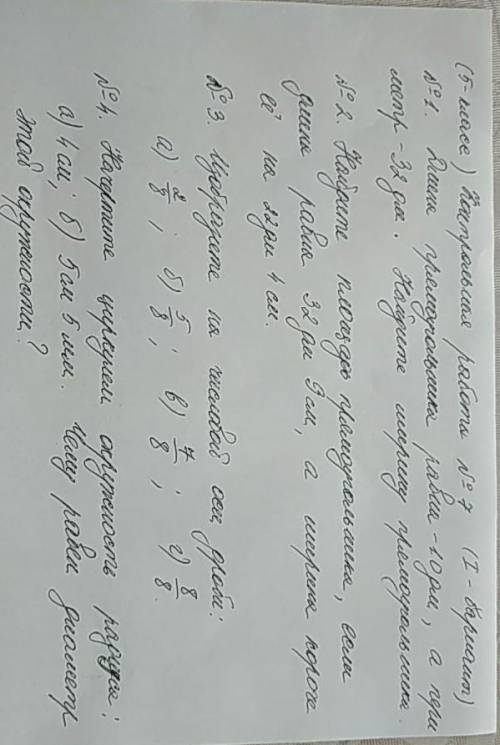 (5-класс) Контрольная работа №7 (I-вариант)
№1. Длина прямоугольника равна -10дм, а пери
метр -32дм. Найдите ширину прямоугольника.
№2. Найдите площадь прямоугольника, если
длина равна 32дм 9см, а ширина короче
её на 22дм 4см.
№3. Изобразите на числовой оси дроби:
а) 2/8; б) 5/8; в) 7/8; г) 8/8.
№4. Начертите циркулем окружность радиуса:
а) 4см; б) 5см 5мм. Чему равен диаметр
этой окружности?